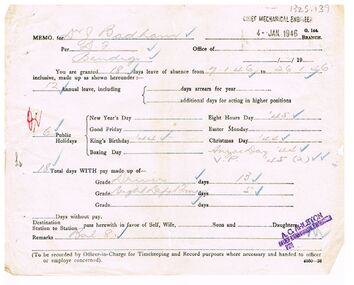 1325.139
CHIEF MECHANICAL ENGINEER
4 - JAN. 1946
G. 166
BRANCH.
MEMO. for W J Badham
Per
Office of
Bendigo
19
You are granted 18 days leave of absence from 7.1.46 to 26.1.46
inclusive, made up as shown hereunder:—
12 Annual leave, including { days arrears for year
additional days for acting in higher positions
6 Public Holidays
New Year's Day
Eight Hours Day '45
Good Friday
Easter Monday
King's Birthday '44
Christmas Day '44
Boxing Day
Anzac Day '44
V.P. '45 (2)
18 Total days WITH pay made up of—
Grade Driver days 13
Grade days 5
Grade days
Days without pay.
Destination
Station to Station } pass herewith in favor of Self, Wife, Son and Daughter
Remarks Bal 8
(To be recorded by Officer-in-Charge for Timekeeping and Record purposes where necessary and handed to officer
or employe concerned).